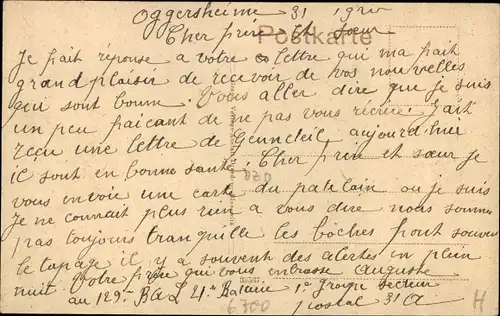 Oggersheime 31 1920
Cher frère et sœur
Postkarte
Je fait réponse a votre lettre qui ma fait
grand plaisir de recevoir de vos nouvelles
qui sont bonne. Vous aller dire que je suis
un peu faicant de ne pas vous récrire. Jait
reçu une lettre de Genneteil aujourd'hui
il sont en bonne santé. Cher frère et sœur je
vous envoie une carte du patelain ou je suis
Je ne connait plus rien a vous dire nous sommes
pas toujours tranquille les bôches font souvent
le tapage il y a souvent des alertes en plein
nuit. Votre frère qui vous embrasse Auguste
au 129me BAL 21e Baterie 1e groupe secteur
postal 31 A
6700
H